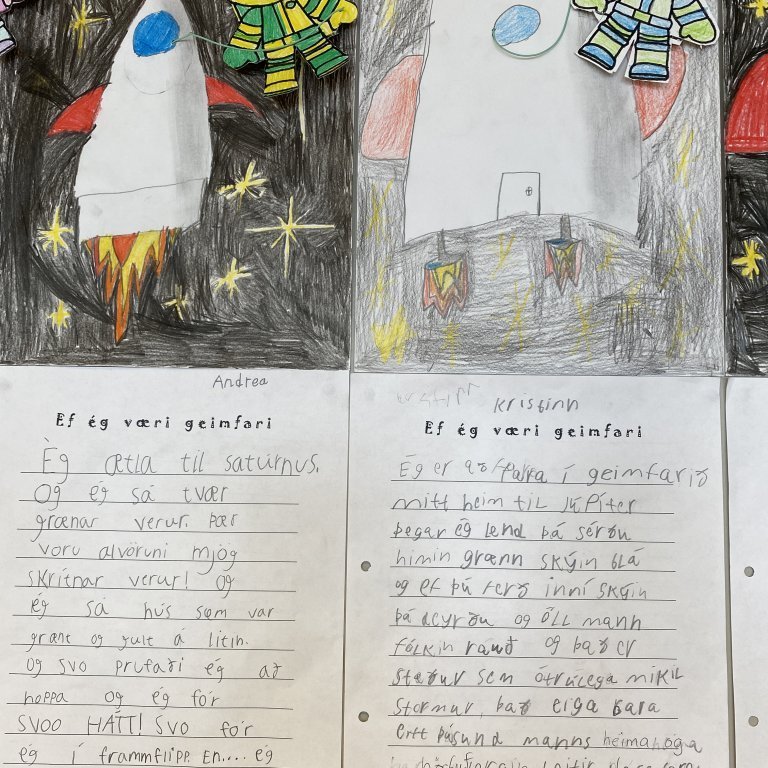 Andrea
Ef ég væri geimfari
Ég ætla til satúrnus.
Og ég sá tvær
grænar verur. Þær
voru alvöruni mjög
skrítnar verur! og
ég sá hús sem var
grænt og gult á litin.
og svo prufaði ég að
hoppa og ég fór
SVOO HÁTT! SVO fór
ég í frammflipp En.... ég
Kristinn
Ef ég væri geimfari
Ég er að í geimfarið
mitt heim til Júpíter
þegar ég lend þá sérðu
himin grænn skýin blá
og ef þú ferð inní skýin
þá deyrðu og öll mann
fólkin rauð og það er
staður sem ótrúlega mikil
stormur, það eiga bara
eitt þúsund manns heima